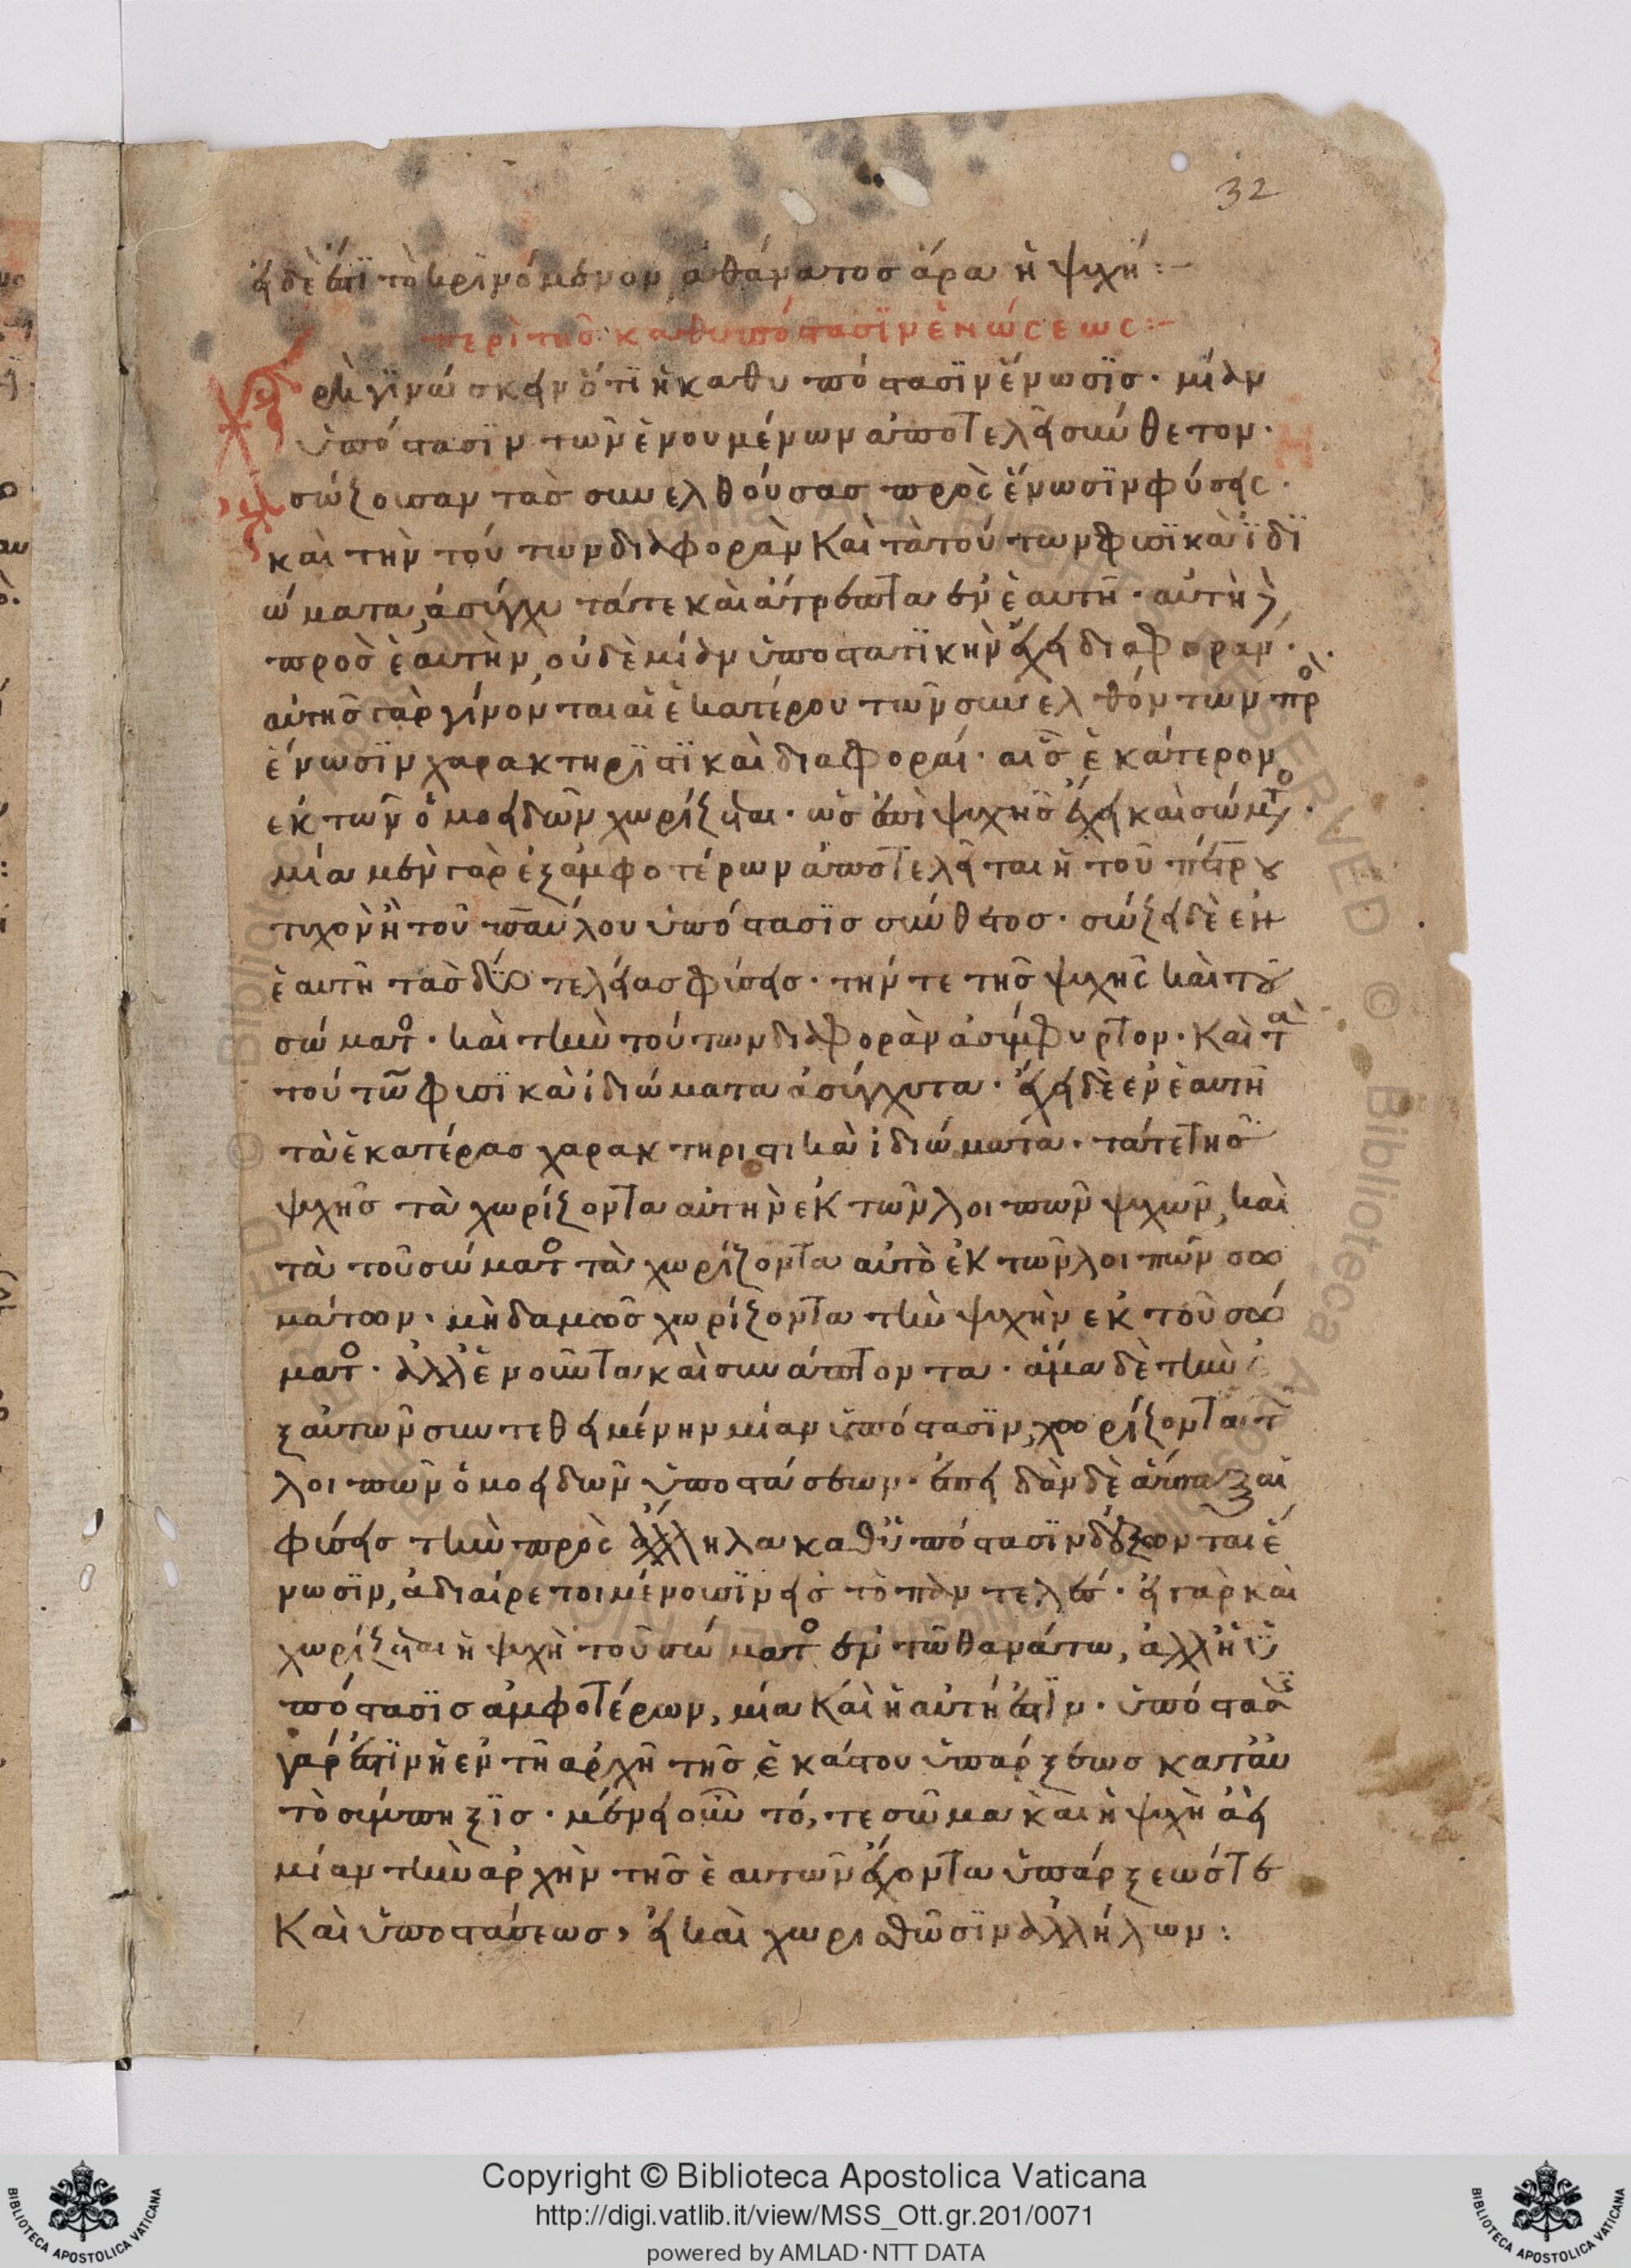 32
εἰ δὲ ἔστι τὸ κρινόμενον, ἀθάνατος ἄρα ἡ ψυχή :-
περὶ τῆς καθυπόστασϊν ἑνώσεως :-
Χρὴ γϊνώσκειν ὅτϊ ἡ καθυπόστασϊν ἕνωσϊς · μίαν
ὑπόστασϊν τῶν ἑνουμένων ἀποτελεῖ σύνθετον ·
σώζουσαν τὰς συνελθούσας πρὸς ἕνωσϊν φύσεις ·
καὶ τὴν τούτων διαφορὰν καὶ τὰ τούτων φυσϊκὰ ἰδϊ
ώματα, ἀσύγχυτά τε καὶ ἄτρεπτα ἐν ἑαυτῇ · αὐτὴ δὲ
πρὸς ἑαυτὴν, οὐδεμίαν ὑποστατϊκὴν ἔχει διαφοράν ·
αὐτῆς γὰρ γίνονται αἱ ἑκατέρου τῶν συνελθόντων πρὸς
ἕνωσϊν χαρακτηρϊστϊκαὶ διαφοραί · αἷς ἑκάτερον
ἐκ τῶν ὁμοειδῶν χωρίζεται · ὡς ἐπὶ ψυχῆς ἔχει καὶ σώματος ·
μία μὲν γὰρ ἐξ ἀμφοτέρων ἀποτελεῖται ἡ τοῦ πέτρου
τυχὸν ἢ τοῦ παύλου ὑπόστασϊς σύνθετος · σώζει δὲ ἐν
ἑαυτῇ τὰς δύο τελείας φύσεις · τήν τε τῆς ψυχῆς καὶ τοῦ
σώματος · καὶ τὴν τούτων διαφορὰν ἀσύμφυρτον · καὶ τὰ
τούτων φυσϊκὰ ἰδιώματα ἀσύγχυτα · ἔχει δὲ ἐν ἑαυτῇ
τὰ ἑκατέρας χαρακτηριστικὰ ἰδιώματα · τά τε τῆς
ψυχῆς τὰ χωρίζοντα αὐτὴν ἐκ τῶν λοιπῶν ψυχῶν, καὶ
τὰ τοῦ σώματος τὰ χωρίζοντα αὐτὸ ἐκ τῶν λοιπῶν σω
μάτων · μηδαμῶς χωρίζοντα τὴν ψυχὴν ἐκ τοῦ σώ
ματος · ἀλλ' ἑνοῦντα καὶ συνάπτοντα · ἅμα δὲ τὴν ἐ
ξ αὐτῶν συντεθειμένην μίαν ὑπόστασϊν, χωρίζοντα τῶν
λοιπῶν ὁμοειδῶν ὑποστάσεων · ἐπειδὰν δὲ ἅπαξ αἱ
φύσεις τὴν πρὸς ἄλληλα καθ' ὑπόστασϊν δέξωνται ἕ
νωσϊν, ἀδιαίρετοι μένουσϊν εἰς τὸ παντελές · εἰ γὰρ καὶ
χωρίζεται ἡ ψυχὴ τοῦ σώματος ἐν τῶ θανάτω, ἀλλ' ἡ ὑ
πόστασϊς ἀμφοτέρων, μία καὶ ἡ αὐτή ἐστϊν · ὑπόστασϊς
γάρ ἐστϊν ἡ ἐν τῇ ἀρχῇ τῆς ἑκάστου ὑπάρξεως κατ' αὐ
τὸ σύμπηξϊς · μένει οὖν τό, τε σῶμα καὶ ἡ ψυχὴ ἀεὶ
μίαν τὴν ἀρχὴν τῆς ἑαυτῶν ἔχοντα ὑπάρξεώς τε
καὶ ὑποστάσεως, εἰ καὶ χωρισθῶσϊν ἀλλήλων :
Copyright © Biblioteca Apostolica Vaticana
http://digi.vatlib.it/view/MSS_Ott.gr.201/0071
powered by AMLAD·NTT DATA